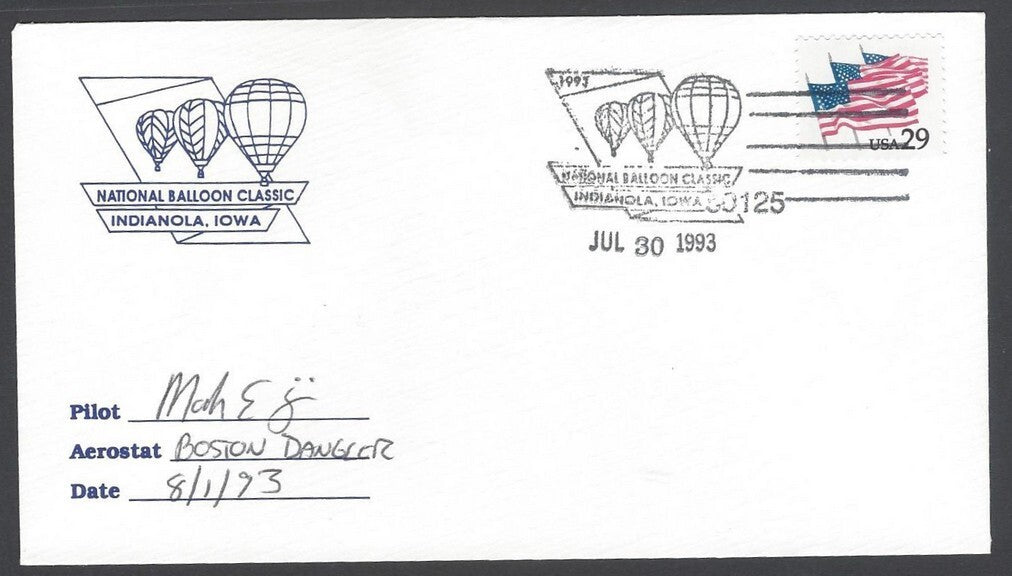 NATIONAL BALLOON CLASSIC
INDIANOLA, IOWA
1993
NATIONAL BALLOON CLASSIC
INDIANOLA, IOWA 50125
JUL 30 1993
USA 29
Pilot
Aerostat BOSTON DANGLER
Date 8/1/93